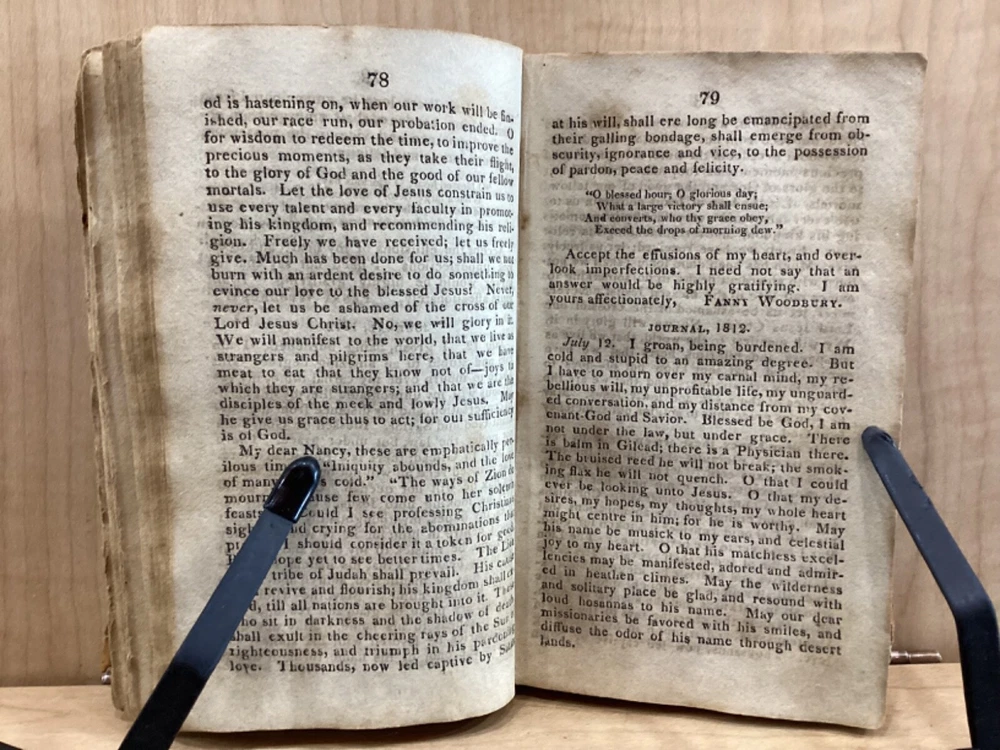 78
od is hastening on, when our work will be fin-
ished, our race run, our probation ended. O
for wisdom to redeem the time, to improve the
precious moments, as they take their flight,
to the glory of God and the good of our fellow
mortals. Let the love of Jesus constrain us to
use every talent and every faculty in promot-
ing his kingdom, and recommending his reli-
gion. Freely we have received; let us freely
give. Much has been done for us; shall we not
burn with an ardent desire to do something to
evince our love to the blessed Jesus? Never,
never, let us be ashamed of the cross of our
Lord Jesus Christ. No, we will glory in it.
We will manifest to the world, that we live as
strangers and pilgrims here, that we have
meat to eat that they know not of—joys to
which they are strangers; and that we are the
disciples of the meek and lowly Jesus. May
he give us grace thus to act; for our sufficiency
is of God.
My dear Nancy, these are emphatically per-
ilous "Iniquity abounds, and the love
of many cold." "The ways of Zion do
mourn few come unto her solemn
feasts could I see professing Christians
crying for the abominations
I should consider it a token for good
hope yet to see better times. The Lion
tribe of Judah shall prevail. His cause
revive and flourish; his kingdom shall
till all nations are brought into it.
who sit in darkness and the shadow of death
shall exult in the cheering rays of the Sun
righteousness, and triumph in his pardoning
love. Thousands, now led captive by Satan
79
at his will, shall ere long be emancipated from
their galling bondage, shall emerge from ob-
scurity, ignorance and vice, to the possession
of pardon, peace and felicity.
"O blessed hour; O glorious day;
What a large victory shall ensue;
And converts, who thy grace obey,
Exceed the drops of morning dew."
Accept the effusions of my heart, and over-
look imperfections. I need not say that an
answer would be highly gratifying. I am
yours affectionately, FANNY WOODBURY.
JOURNAL, 1812.
July 12. I groan, being burdened. I am
cold and stupid to an amazing degree. But
I have to mourn over my carnal mind, my re-
bellious will, my unprofitable life, my unguard-
ed conversation, and my distance from my cov-
enant-God and Savior. Blessed be God, I am
not under the law, but under grace. There
is balm in Gilead; there is a Physician there.
The bruised reed he will not break; the smok-
ing flax he will not quench. O that I could
ever be looking unto Jesus. O that my de-
sires, my hopes, my thoughts, my whole heart
might centre in him; for he is worthy. May
his name be musick to my ears, and celestial
joy to my heart. O that his matchless excel-
lencies may be manifested, adored and admir-
ed in heathen climes. May the wilderness
and solitary place be glad, and resound with
loud hosannas to his name. May our dear
missionaries be favored with his smiles, and
diffuse the odor of his name through desert
lands.